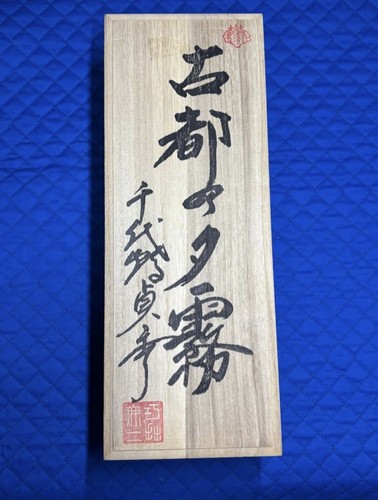 古都の夕霧
千代鶴貞秀